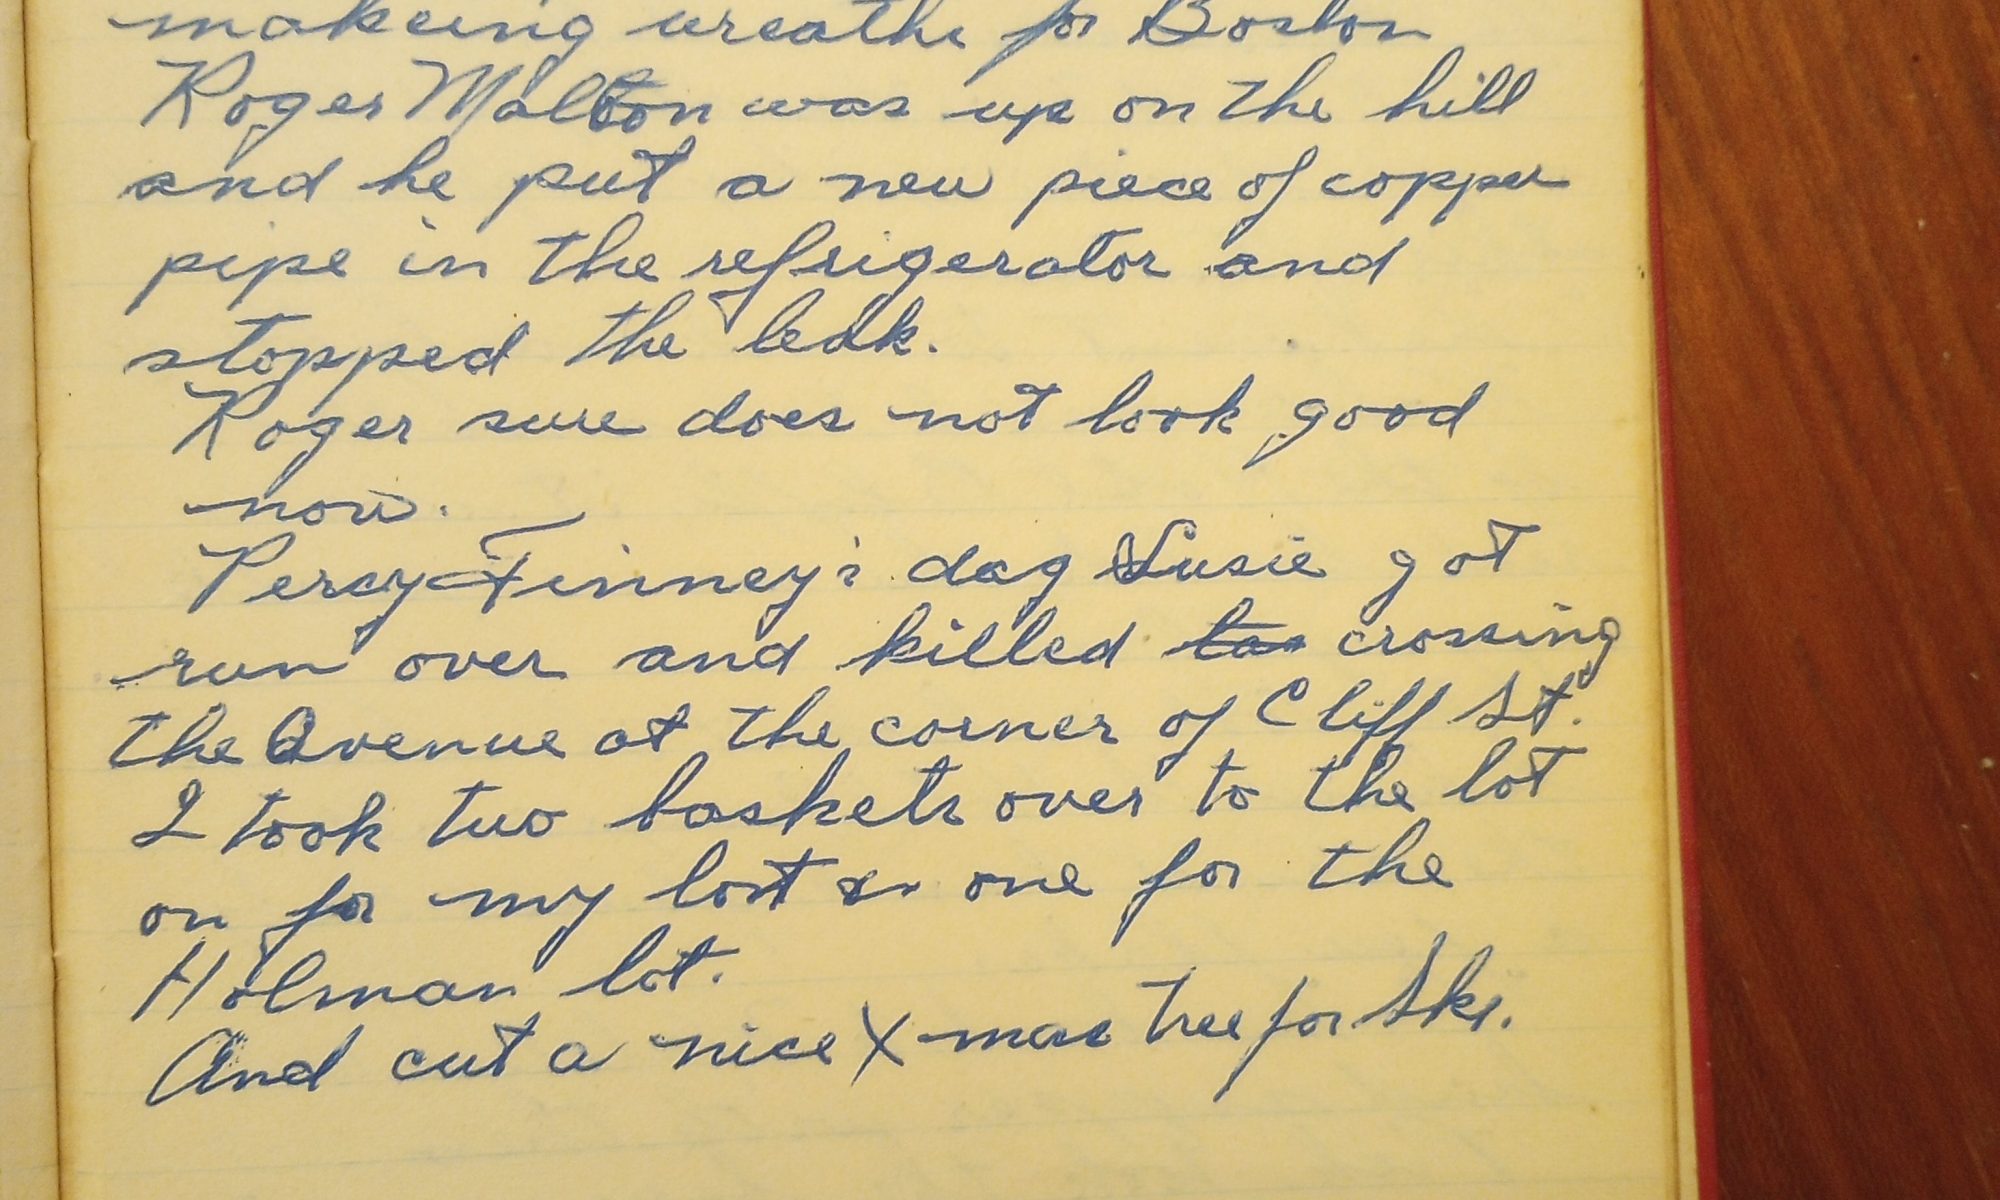 makeing wreaths for Boston
Roger Malton was up on the hill
and he put a new piece of copper
pipe in the refrigerator and
stopped the leak.
Roger sure does not look good
now.
Percy Finney's dog Susie got
run over and killed crossing
the Avenue at the corner of Cliff St.
I took two baskets over to the lot
on for my lot one for the
Holman lot.
And cut a nice X-mas tree for